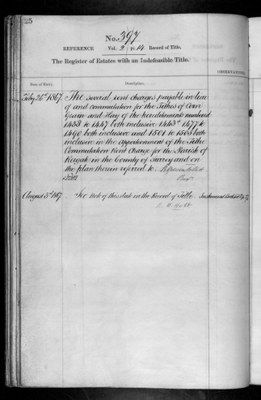 25
No. 397
REFERENCE Vol. 2 fo. 14 Record of Title.
The Register of Estates with an Indefeasible Title.
OBSERVATIONS
Date of Entry. Description.
Feby 26th 1867. The several rent charges payable in lieu
of and commutation for the Tithes of Corn
Grain and Hay of the hereditaments numbered
1433 to 1447 both inclusive 1463a 1477 to
1490 both inclusive and 1501 to 1503 both
inclusive in the Apportionment of the Tithe
Commutation Rent Charge for the Parish of
in the County of Surrey and on
the plan therein referred to.
August 5th 1867. See Note of this date in the Record of Title